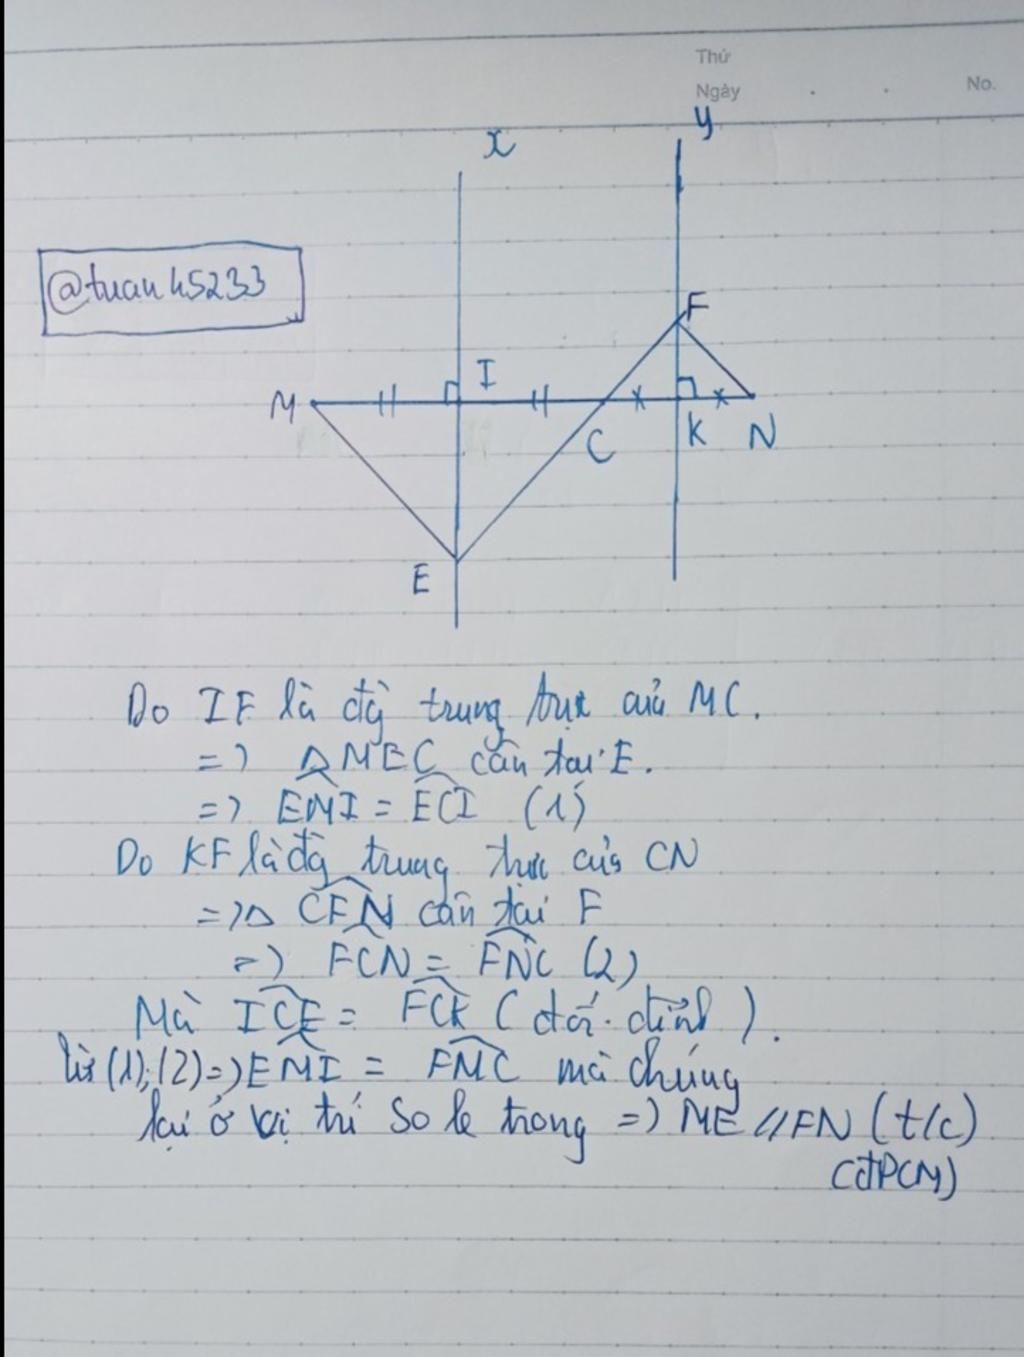 Thứ
Ngày
No.
x
y
@tuan45233
F
M
I
C
K
N
E
Do IE là đg trung trực của MC.
=> △MEC cân tại E.
=> EMI = ECI (1)
Do KF là đg trung trực của CN
=> △ CFN cân tại F
=> FCN = FNC (2)
Mà ICE = FCK (đối đỉnh).
Từ (1);(2)=> EMI = FMC mà chúng
lại ở vị trí so le trong => ME // FN (t/c)
(đPCM)